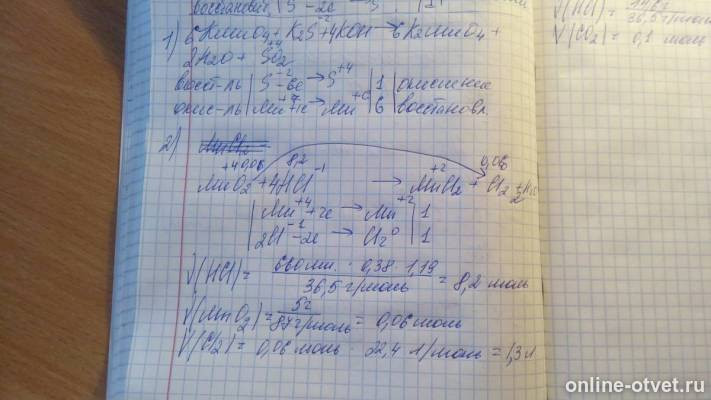 восстановл. | S⁻²-2e → S
1) 6KMnO4 + K2S + 4KOH → 6K2MnO4 +
2H2O + S⁺⁴O2
восст-ль | S⁻² - 6e → S⁺⁴ | 1 | окисление
окис-ль | Mn⁺⁷ + 1e → Mn⁺⁶ | 6 | восстановл.
2) MnCl2
+4 0,06 8,2 0,06
MnO2 + 4HCl⁻¹ → Mn⁺²Cl2 + Cl2 + H2O
2
| Mn⁺⁴ + 2e → Mn⁺² | 1
| 2Cl⁻¹ - 2e → Cl2⁰ | 1
V(HCl) = 660мл · 0,38 · 1,19 / 36,5 г/моль = 8,2 моль
V(MnO2) = 5г / 87г/моль = 0,06 моль
V(Cl2) = 0,06 моль · 22,4 л/моль = 1,3 л
V(HCl) =
36,5 г/моль
V(CO2) = 0,1 моль
online-otvet.ru